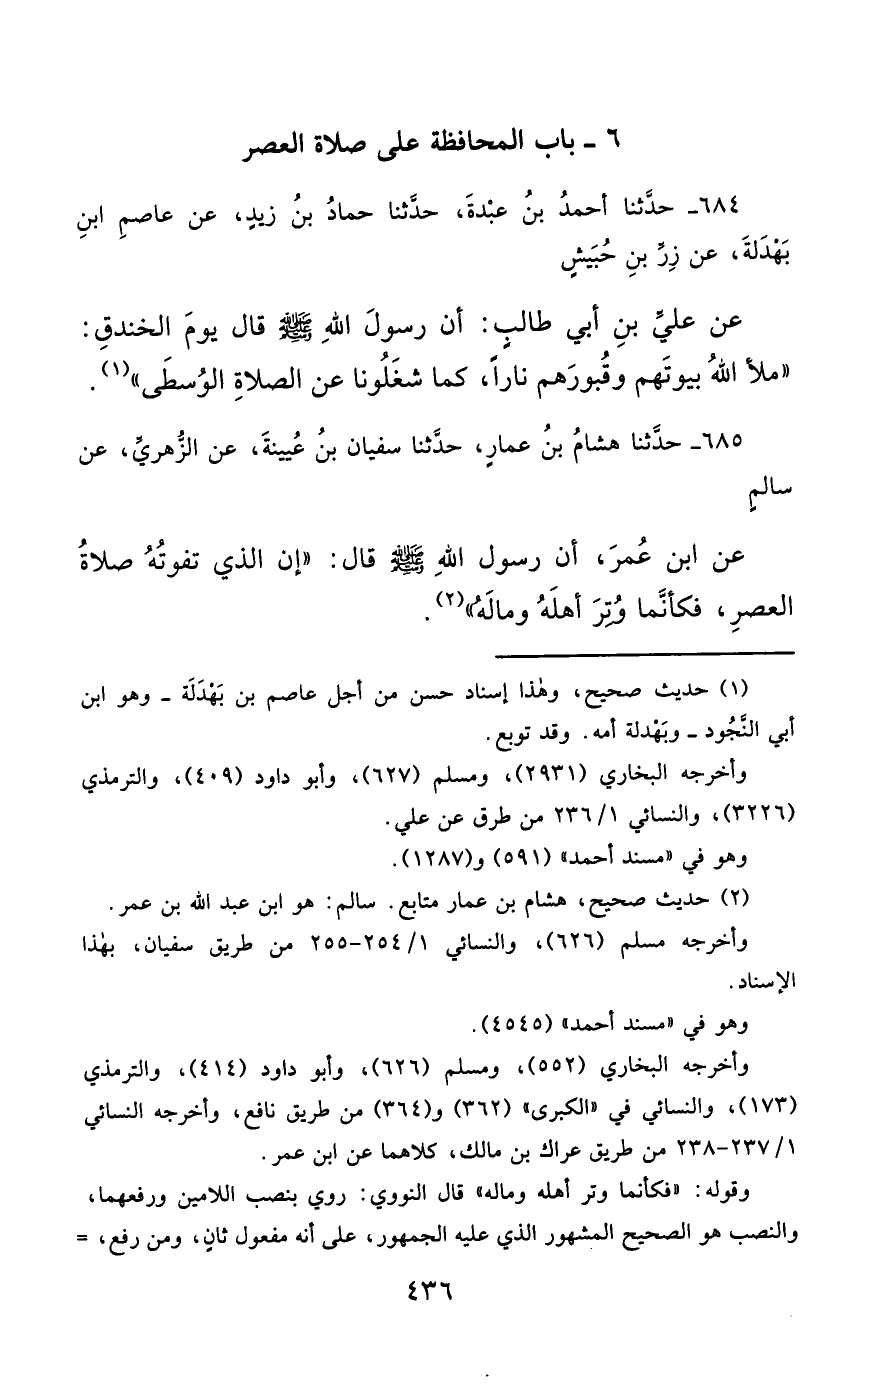 ٦ ـ باب المحافظة على صلاة العصر
٦٨٤ـ حدَّثنا أحمدُ بنُ عبْدةَ، حدَّثنا حمادُ بنُ زيدٍ، عن عاصمِ ابنِ
بَهْدَلةَ، عن زِرِّ بنِ حُبَيشٍ
عن عليِّ بنِ أبي طالبٍ: أن رسولَ اللهِ ﷺ قال يومَ الخندقِ:
«ملأ اللهُ بيوتَهم وقُبورَهم ناراً، كما شغَلُونا عن الصلاةِ الوُسطَى»(١).
٦٨٥ـ حدَّثنا هشامُ بنُ عمارٍ، حدَّثنا سفيان بنُ عُيينةَ، عن الزُّهريِّ، عن
سالمٍ
عن ابن عُمرَ، أن رسول اللهِ ﷺ قال: «إن الذي تفوتُهُ صلاةُ
العصرِ، فكأنَّما وُتِرَ أهلَهُ ومالَهُ»(٢).
(١) حديث صحيح، وهٰذا إسناد حسن من أجل عاصم بن بَهْدَلَة ـ وهو ابن
أبي النَّجُود ـ وبَهْدلة أمه. وقد توبع.
وأخرجه البخاري (٢٩٣١)، ومسلم (٦٢٧)، وأبو داود (٤٠٩)، والترمذي
(٣٢٢٦)، والنسائي ١/ ٢٣٦ من طرق عن علي.
وهو في «مسند أحمد» (٥٩١) و(١٢٨٧).
(٢) حديث صحيح، هشام بن عمار متابع. سالم: هو ابن عبد الله بن عمر.
وأخرجه مسلم (٦٢٦)، والنسائي ١/ ٢٥٤-٢٥٥ من طريق سفيان، بهٰذا
الإسناد.
وهو في «مسند أحمد» (٤٥٤٥).
وأخرجه البخاري (٥٥٢)، ومسلم (٦٢٦)، وأبو داود (٤١٤)، والترمذي
(١٧٣)، والنسائي في «الكبرى» (٣٦٢) و(٣٦٤) من طريق نافع، وأخرجه النسائي
١/ ٢٣٧-٢٣٨ من طريق عراك بن مالك، كلاهما عن ابن عمر.
وقوله: «فكأنما وتر أهله وماله» قال النووي: روي بنصب اللامين ورفعهما،
والنصب هو الصحيح المشهور الذي عليه الجمهور، على أنه مفعول ثانٍ، ومن رفع، =
٤٣٦